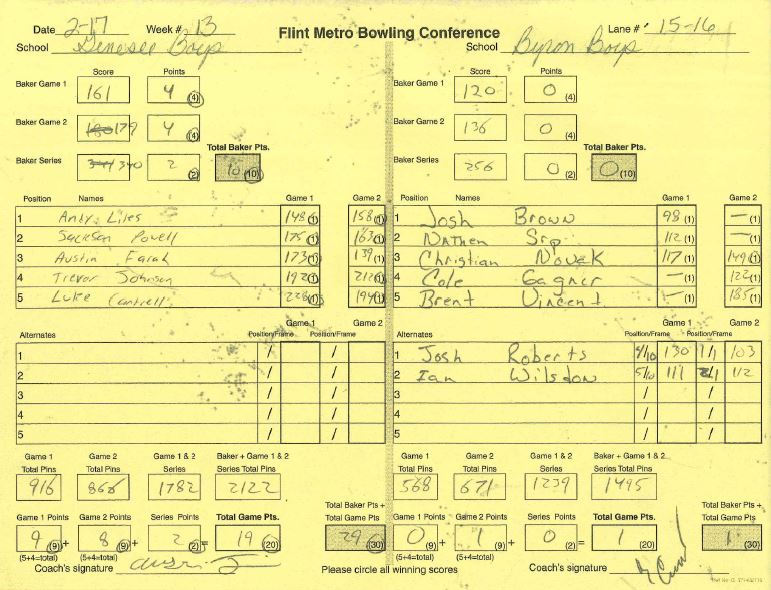 Date 2-17 Week # 13 Flint Metro Bowling Conference Lane # 15-16
School Genesee Boys School Byron Boys
Score Points Score Points
Baker Game 1 161 4 (4) Baker Game 1 120 0 (4)
Baker Game 2 180 179 4 (4) Baker Game 2 136 0 (4)
Total Baker Pts. Total Baker Pts.
Baker Series 341 340 2 (2) 10 (10) Baker Series 256 0 (2) 0 (10)
Position Names Game 1 Game 2 Position Names Game 1 Game 2
1 Andy Liles 148 (1) 158 (1) 1 Josh Brown 98 (1) — (1)
2 Jackson Powell 175 (1) 163 (1) 2 Nathen Srp 112 (1) — (1)
3 Austin Farah 173 (1) 139 (1) 3 Christian Novak 117 (1) 149 (1)
4 Trevor Johnson 192 (1) 212 (1) 4 Cole Gagner — (1) 122 (1)
5 Luke Cantrell 228 (1) 194 (1) 5 Brent Vincent — (1) 185 (1)
Game 1 Game 2 Game 1 Game 2
Alternates Position/Frame Position/Frame Alternates Position/Frame Position/Frame
1 / / 1 Josh Roberts 4/10 130 1/1 103
2 / / 2 Ian Wilsdon 5/10 111 2/1 112
3 / / 3 / /
4 / / 4 / /
5 / / 5 / /
Game 1 Game 2 Game 1 & 2 Baker + Game 1 & 2 Game 1 Game 2 Game 1 & 2 Baker + Game 1 & 2
Total Pins Total Pins Series Series Total Pins Total Pins Total Pins Series Series Total Pins
916 866 1782 2122 568 671 1239 1495
Total Baker Pts + Total Baker Pts +
Game 1 Points Game 2 Points Series Points Total Game Pts. Total Game Pts. Game 1 Points Game 2 Points Series Points Total Game Pts. Total Game Pts.
9 (9) + 8 (9) + 2 (2) = 19 (20) 29 (30) 0 (9) + 1 (9) + 0 (2) = 1 (20) 1 (30)
(5+4=total) (5+4=total) (5+4=total) (5+4=total)
Coach's signature Please circle all winning scores Coach's signature